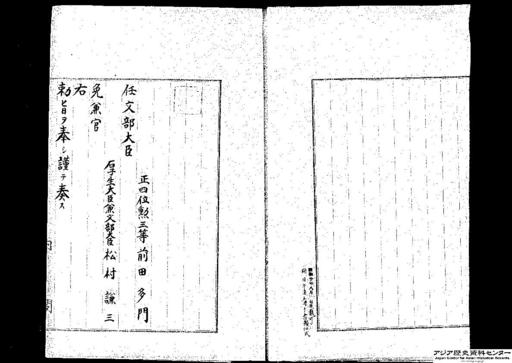 任文部大臣
正四位勲三等前田多門
免兼官
厚生大臣兼文部大臣松村謙三
右
勅旨ヲ奉シ謹テ奏ス
内閣
アジア歴史資料センター
Japan Center for Asian Historical Records